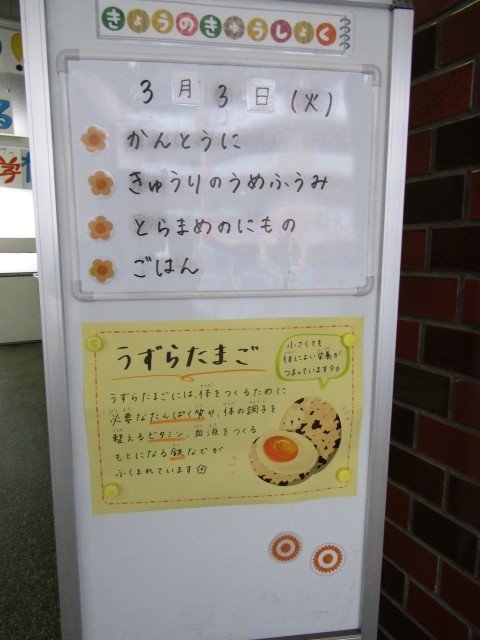 きょうのきゅうしょく
3月3日(火)
かんとうに
きゅうりのうめふうみ
とらまめのにもの
ごはん
うずらたまご
小さくても
体によい栄養が
つまっています
うずらたまごには、体をつくるために
必要なたんぱく質や、体の調子を
整えるビタミン、血液をつくる
もとになる鉄などが
ふくまれています